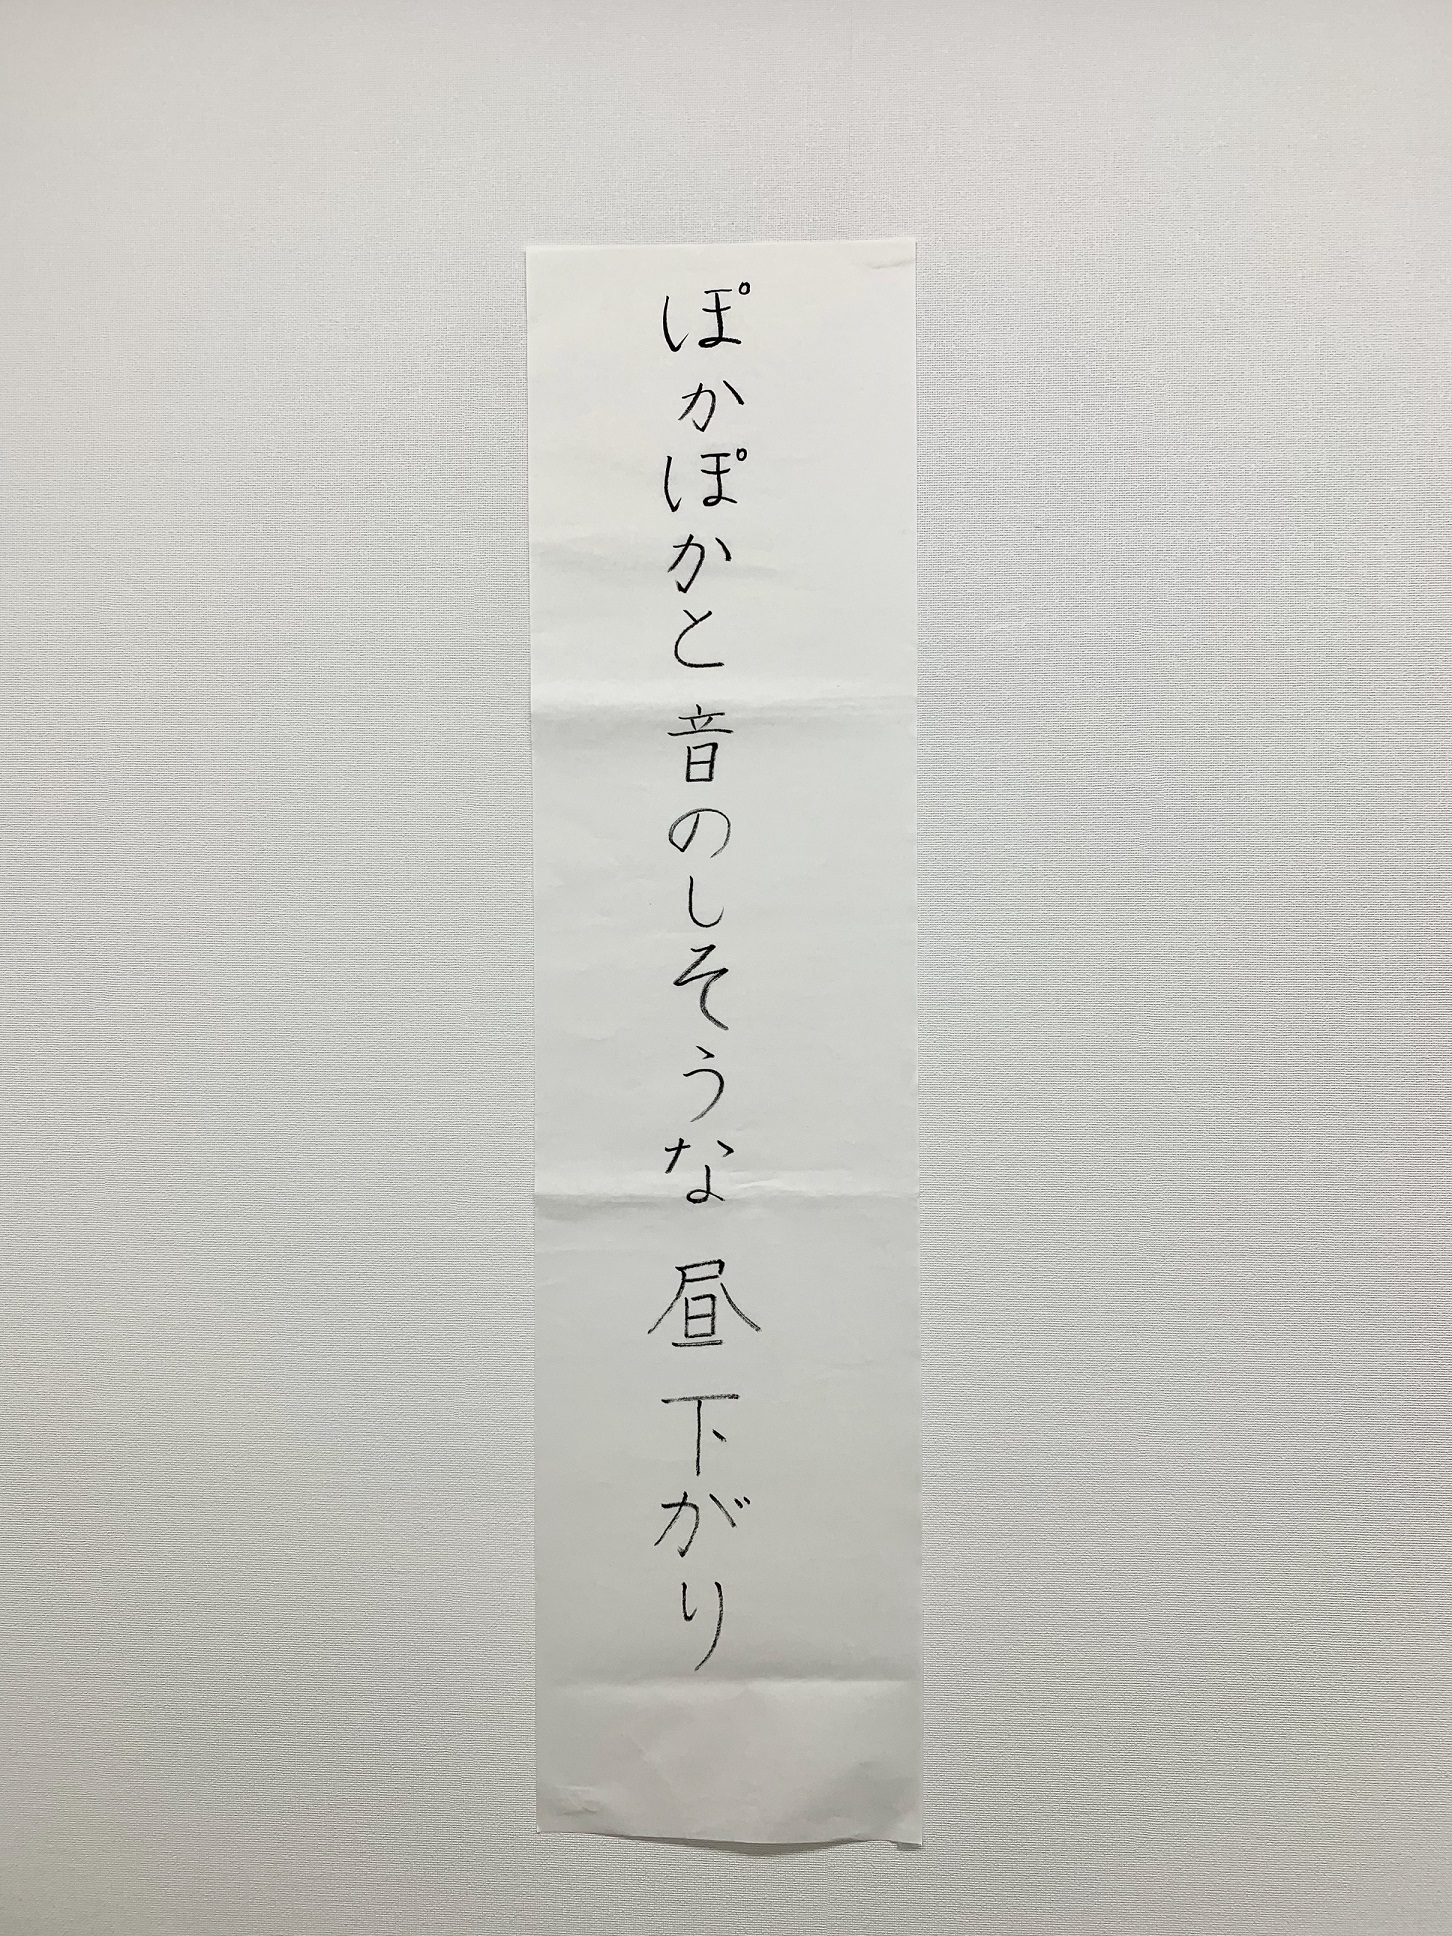 ぽかぽかと音のしそうな昼下がり